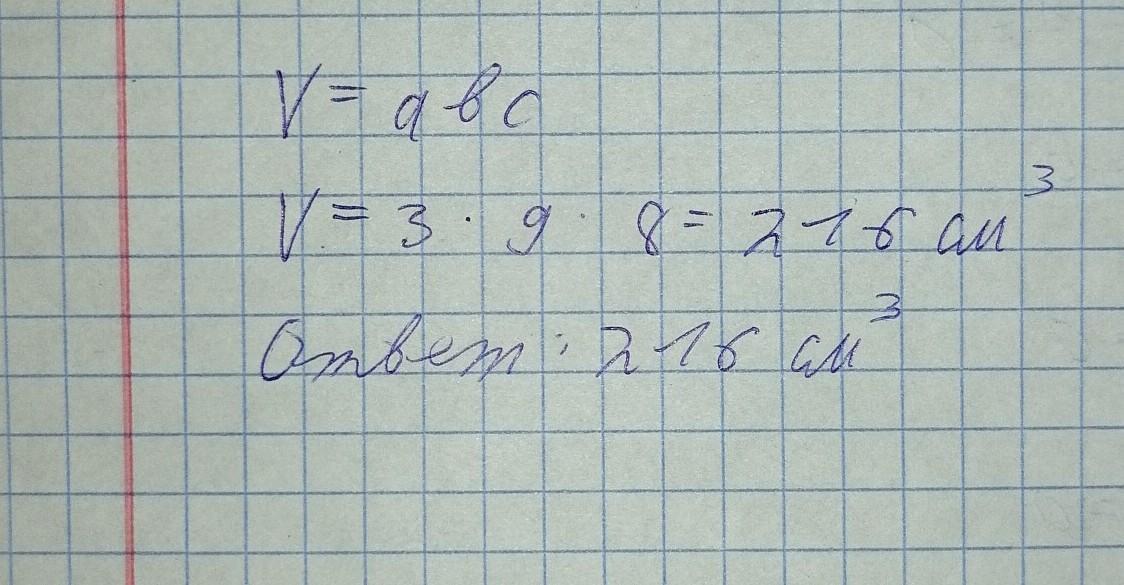 V = авс
V = 3 · 9 · 8 = 216 см³
Ответ: 216 см³